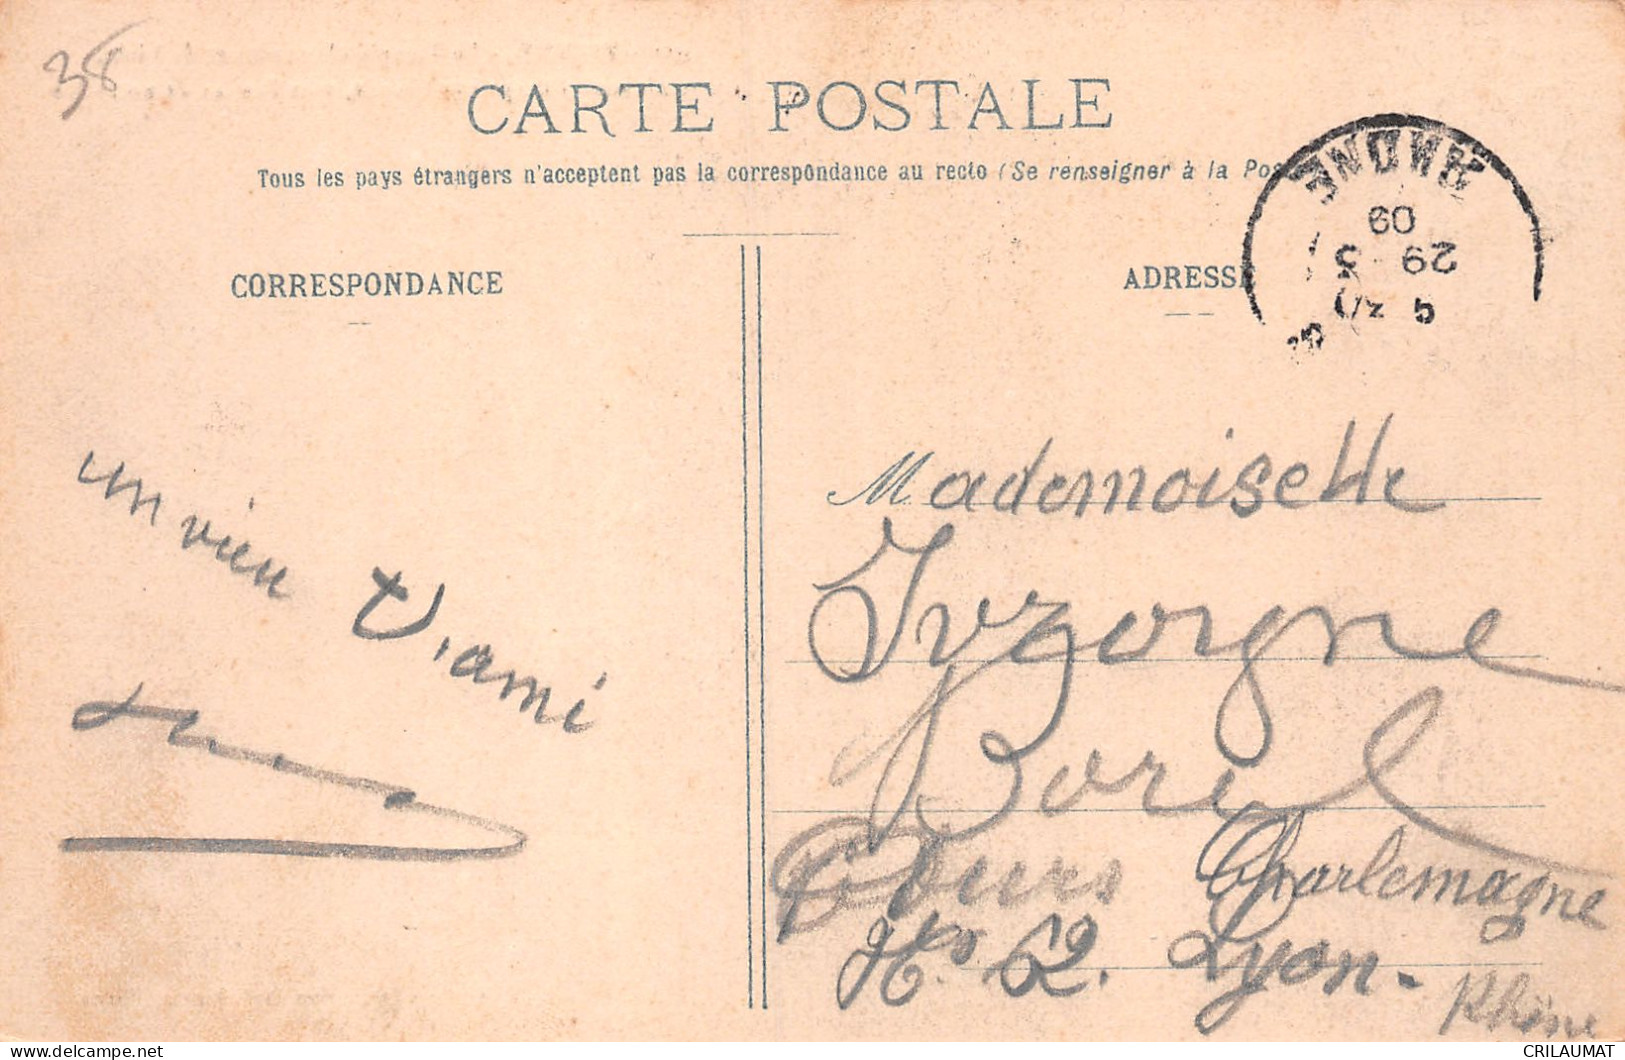 38
CARTE POSTALE
Tous les pays étrangers n'acceptent pas la correspondance au recto (Se renseigner à la Pos
09
29 3
5 30
CORRESPONDANCE
ADRESSE
un vieux
ami
Mademoiselle
Yvgorgne
Borel
Cours Charlemagne
No 62. Lyon.
Rhône
CRILAUMAT